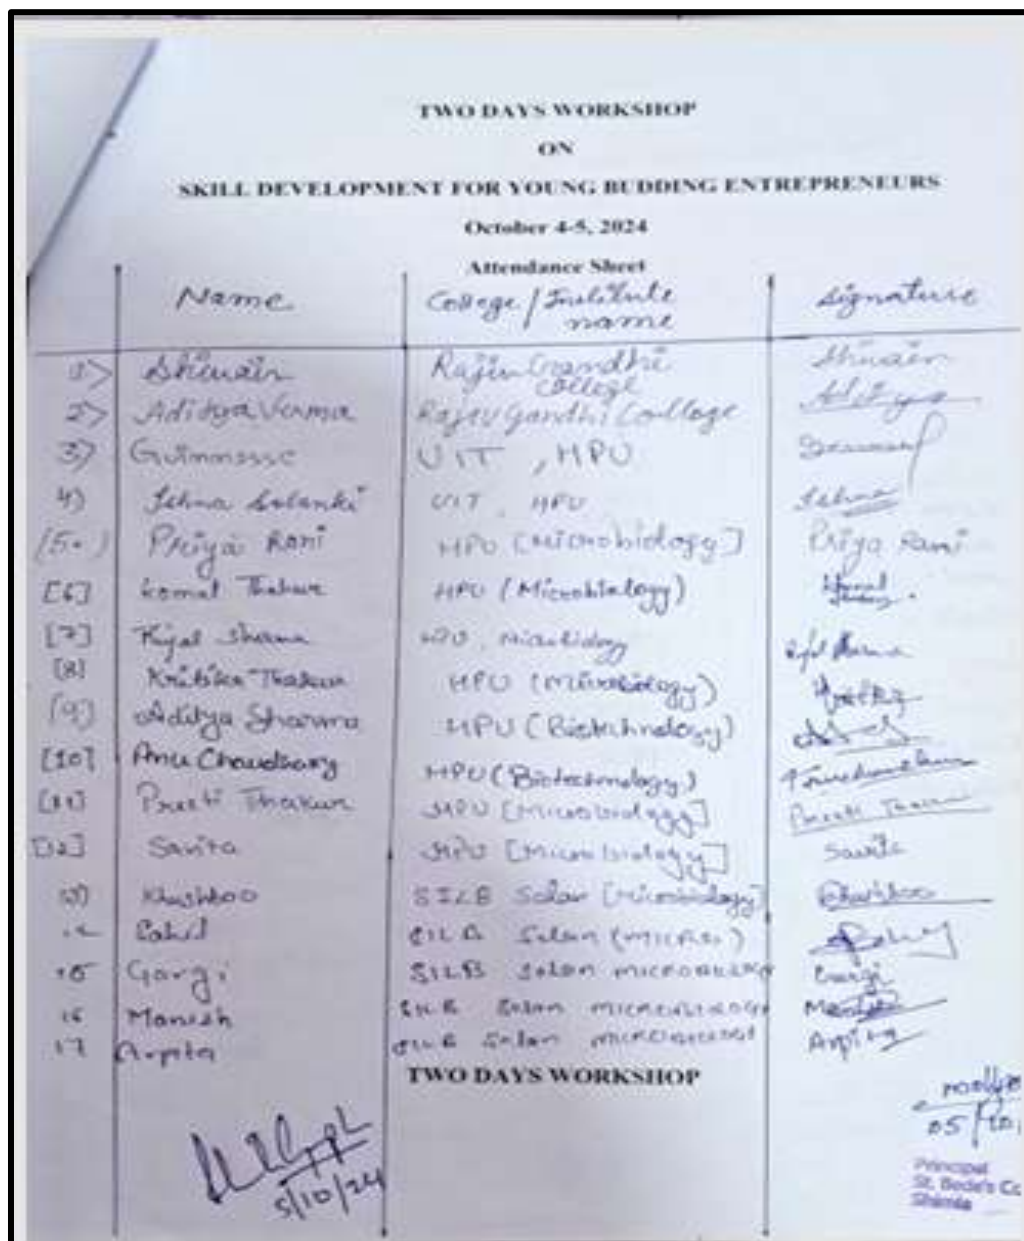 TWO DAYS WORKSHOP
ON
SKILL DEVELOPMENT FOR YOUNG BUDDING ENTREPRENEURS
October 4-5, 2024
Attendance Sheet
Name College/Institute name Signature
1) Rajiv Gandhi College
2) Aditya Verma Rajiv Gandhi College Aditya
3) UIT, HPU
4) Ishna Solanki UIT, HPU Ishna
(5.) Priya Rani HPU [Microbiology] Priya Rani
[6] Komal Thakur HPU (Microbiology)
[7] HPU, Microbiology
[8] Kritika Thakur HPU (Microbiology)
[9] Aditya Sharma HPU (Biotechnology)
[10] Anu Choudhary HPU (Biotechnology)
[11] Preeti Thakur HPU [Microbiology] Preeti Thakur
[12] Savita HPU [Microbiology] Savita
13) Khushboo SILB Solan [Microbiology] Khushboo
Sahil SILB Solan
15 Gargi SILB Solan Gargi
16 Manish SILB Solan
17 Arpita SILB Solan Arpita
TWO DAYS WORKSHOP
5/10/24
05/10
Principal
St. Bede's
Shimla